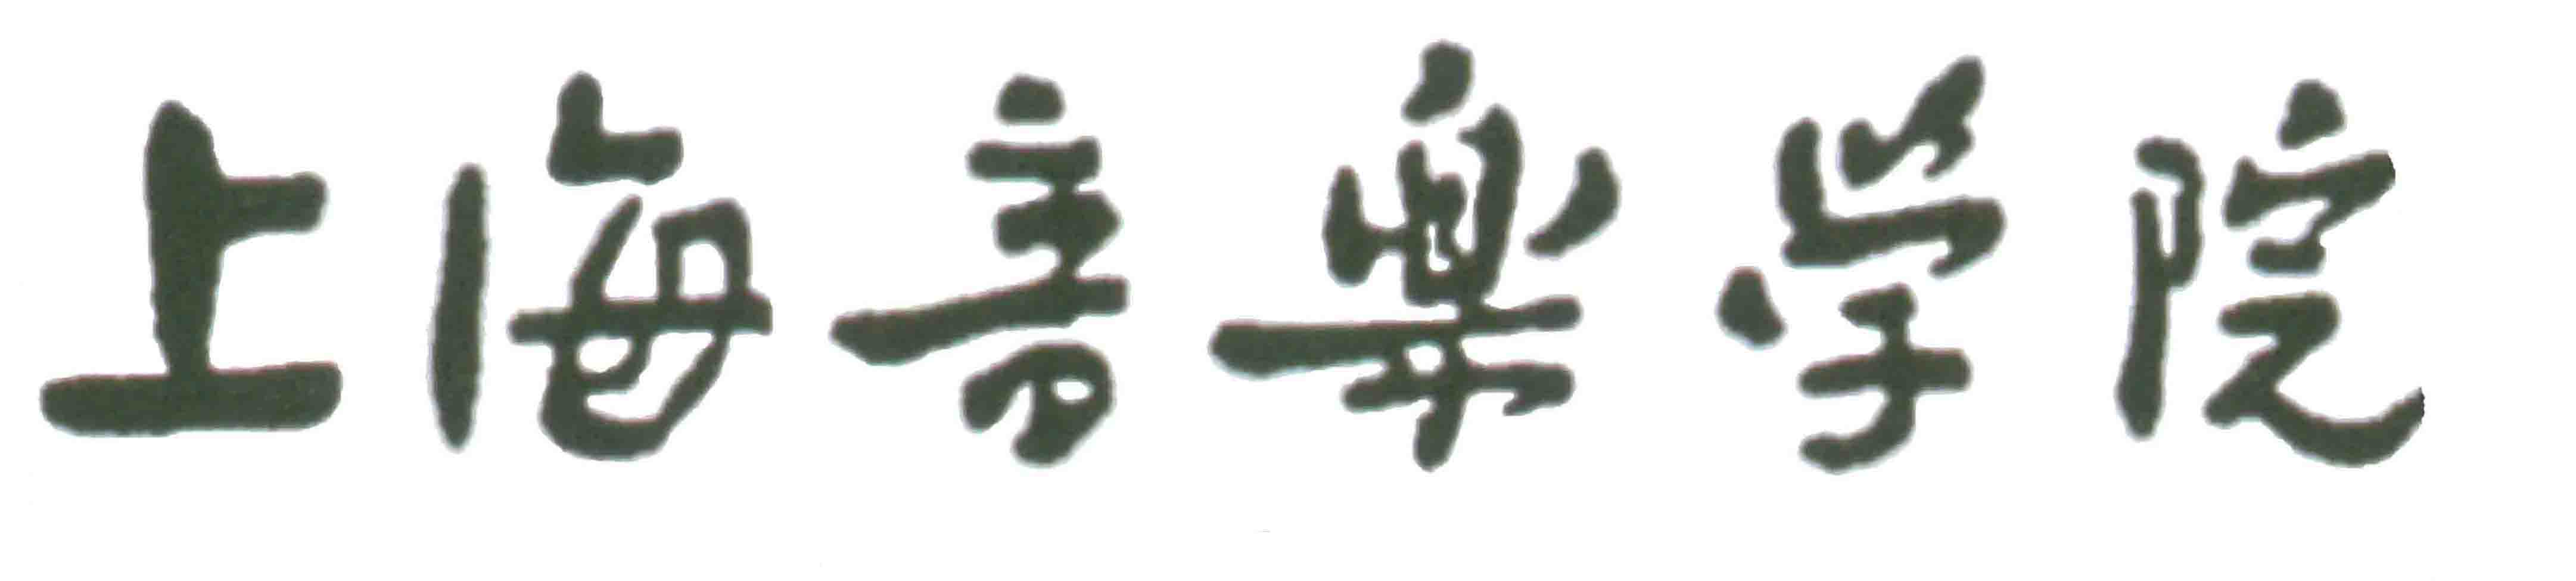 上海音樂学院